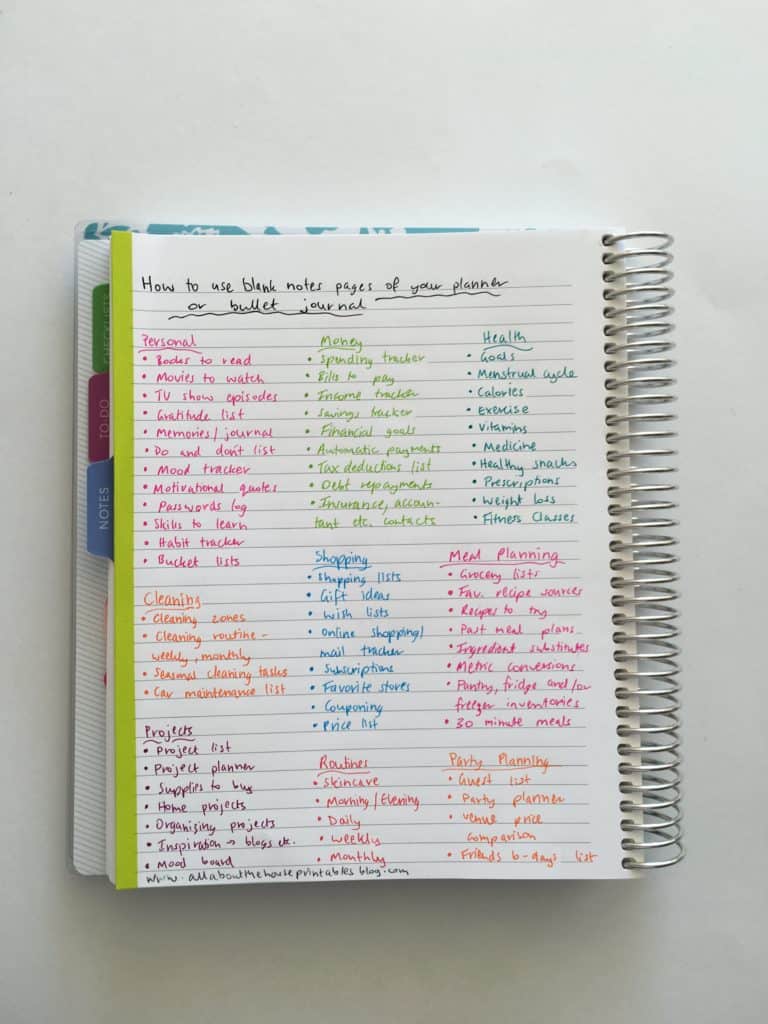 How to use blank notes pages of your planner
or bullet journal
CHECKLISTS
TO DO
NOTES
Personal
• Books to read
• Movies to watch
• TV show episodes
• Gratitude list
• Memories / journal
• Do and don't list
• Mood tracker
• Motivational quotes
• Passwords log
• Skills to learn
• Habit tracker
• Bucket lists
Money
• Spending tracker
• Bills to pay
• Income tracker
• Savings tracker
• Financial goals
• Automatic payments
• Tax deductions list
• Debt repayments
• Insurance, accoun-
tant etc. contacts
Health
• Goals
• Menstrual cycle
• Calories
• Exercise
• Vitamins
• Medicine
• Healthy snacks
• Prescriptions
• Weight loss
• Fitness Classes
Cleaning
• Cleaning zones
• Cleaning routine -
weekly, monthly
• Seasonal cleaning tasks
• Car maintenance list
Shopping
• Shopping lists
• Gift ideas
• Wish lists
• Online shopping/
mail tracker
• Subscriptions
• Favorite stores
• Couponing
• Price list
Meal Planning
• Grocery lists
• Fav. recipe sources
• Recipes to try
• Past meal plans
• Ingredient substitutes
• Metric conversions
• Pantry, fridge and/or
freezer inventories
• 30 minute meals
Projects
• Project list
• Project planner
• Supplies to buy
• Home projects
• Organising projects
• Inspiration → blogs etc.
• Mood board
Routines
• Skincare
• Morning / Evening
• Daily
• Weekly
• Monthly
Party Planning
• Guest list
• Party planner
• Venue price
comparison
• Friends b-days list
www.allaboutthehouseprintablesblog.com